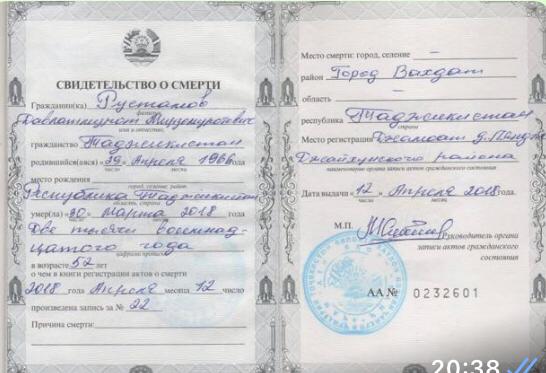 СВИДЕТЕЛЬСТВО О СМЕРТИ
Гражданин(ка) Рустамов
фамилия
имя и отчество,
гражданство Таджикистан
страна
родившийся(аяся) Апреля 1966
число
место рождения
город, селение район
Республика Таджикистан
область, страна
умер(ла) « » Марта 2018 года
Две тысячи восемнад-
цатого года
цифрами прописью
в возрасте 52 лет
о чем в книги регистрации актов о смерти
2018 года Апреля месяца 12 число
произведена запись за № 22
Причина смерти:
Место смерти: город, селение –
район Город Вахдат
область –
республика Таджикистан
страна
Место регистрации Джамоат
района
наименование органа записи актов гражданского состояния
Дата выдачи «12» Апреля 2018 года.
М.П.
Руководитель органа
записи актов гражданского
состояния
АА № 0232601
20:38